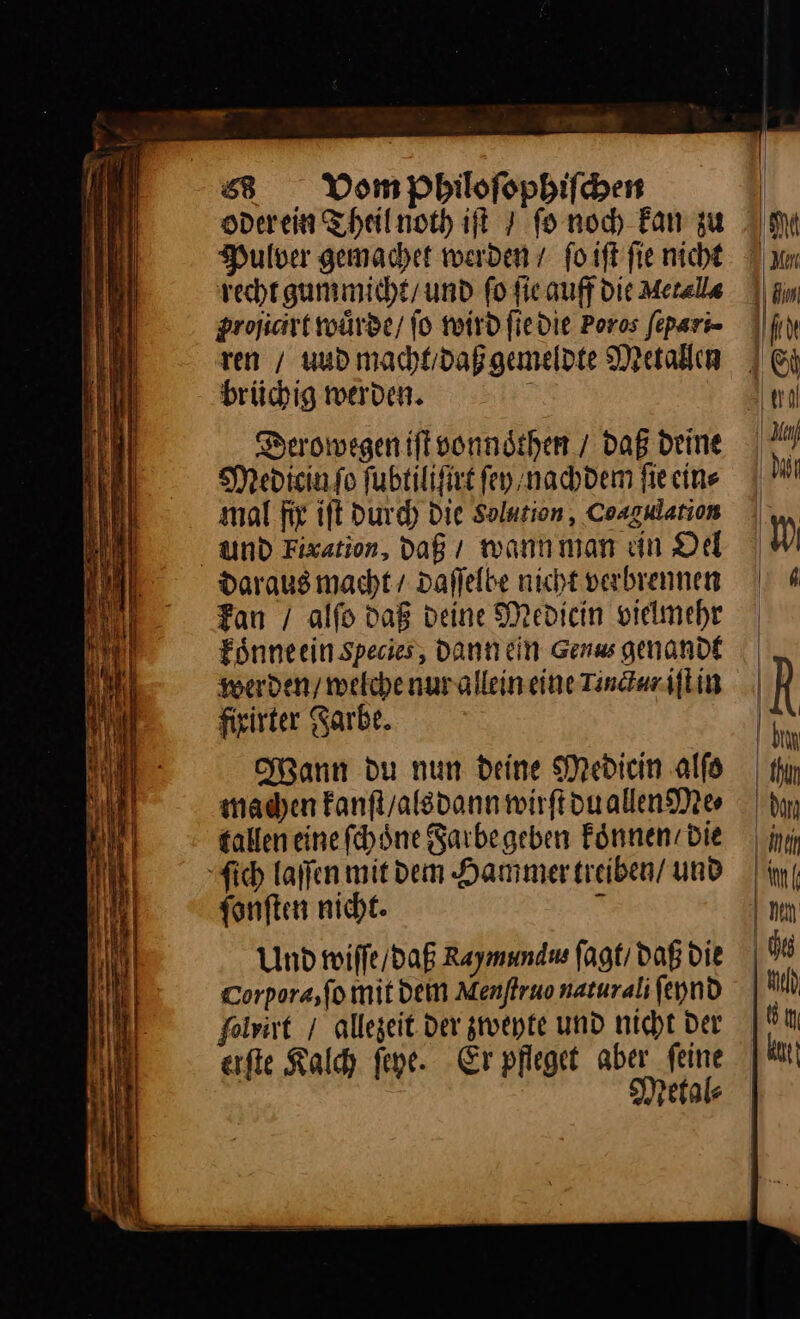 68 Vom Philoſophiſchen
oder ein Theil noth iſt / ſo noch kan zu
Pulver gemachet werden / ſo iſt ſie nicht
recht gummicht / und ſo ſie auff die Metalla
projicirt wuͤrde / ſo wird ſie die Poros ſepari-
ren / uud macht / daß gemeldte Metallen
bruͤchig werden.
Derowegen iſt vonnoͤthen / daß deine
Medicin ſo ſubtiliſirt ſey / nachdem ſie ein-
mal fix iſt durch die Solution, Coagulation
und Fixation, daß / wann man ein Oel
daraus macht / daſſelbe nicht verbrennen
kan / alſo daß deine Medicin vielmehr
koͤnne ein Species, dann ein Genus genandt
werden / welche nur allein eine Tinctur iſt in
fixirter Farbe.
Wann du nun deine Medicin alſo
machen kanſt / alsdann wirſt du allen Me-
tallen eine ſchoͤne Farbe geben koͤnnen / die
ſich laſſen mit dem Hammer treiben / und
ſonſten nicht.
Und wiſſe / daß Raymundus ſagt / daß die
Corpora, ſo mit dem Menſtruo naturali ſeynd
ſolvirt / allezeit der zweyte und nicht der
erſte Kalch ſeye. Er pfleget aber ſeine
Metal-